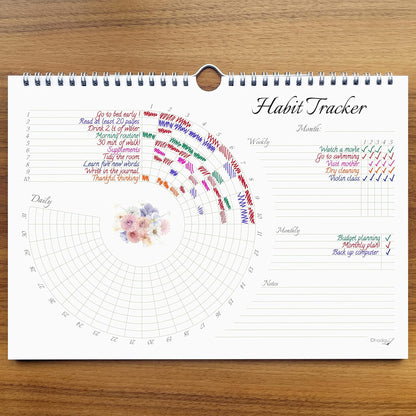 Habit Tracker
Month:
1 Go to bed early!
2 Read at least 20 pages
3 Drink 2 lt of water
4 Morning routine!
5 30 min of walk!
6 Supplements
7 Tidy the room
8 Learn five new words
9 Write in the journal
10 Thankful thinking!
Daily
Weekly
1 2 3 4 5
Watch a movie ✓✓✓✓✓
Go to swimming ✓✓✓✓✓
Visit mother ✓✓✓✓✓
Dry cleaning ✓✓✓✓✓
Violin class ✓✓✓✓✓
Monthly
Budget planning ✓
Monthly plan! ✓
Back up computer ✓
Notes